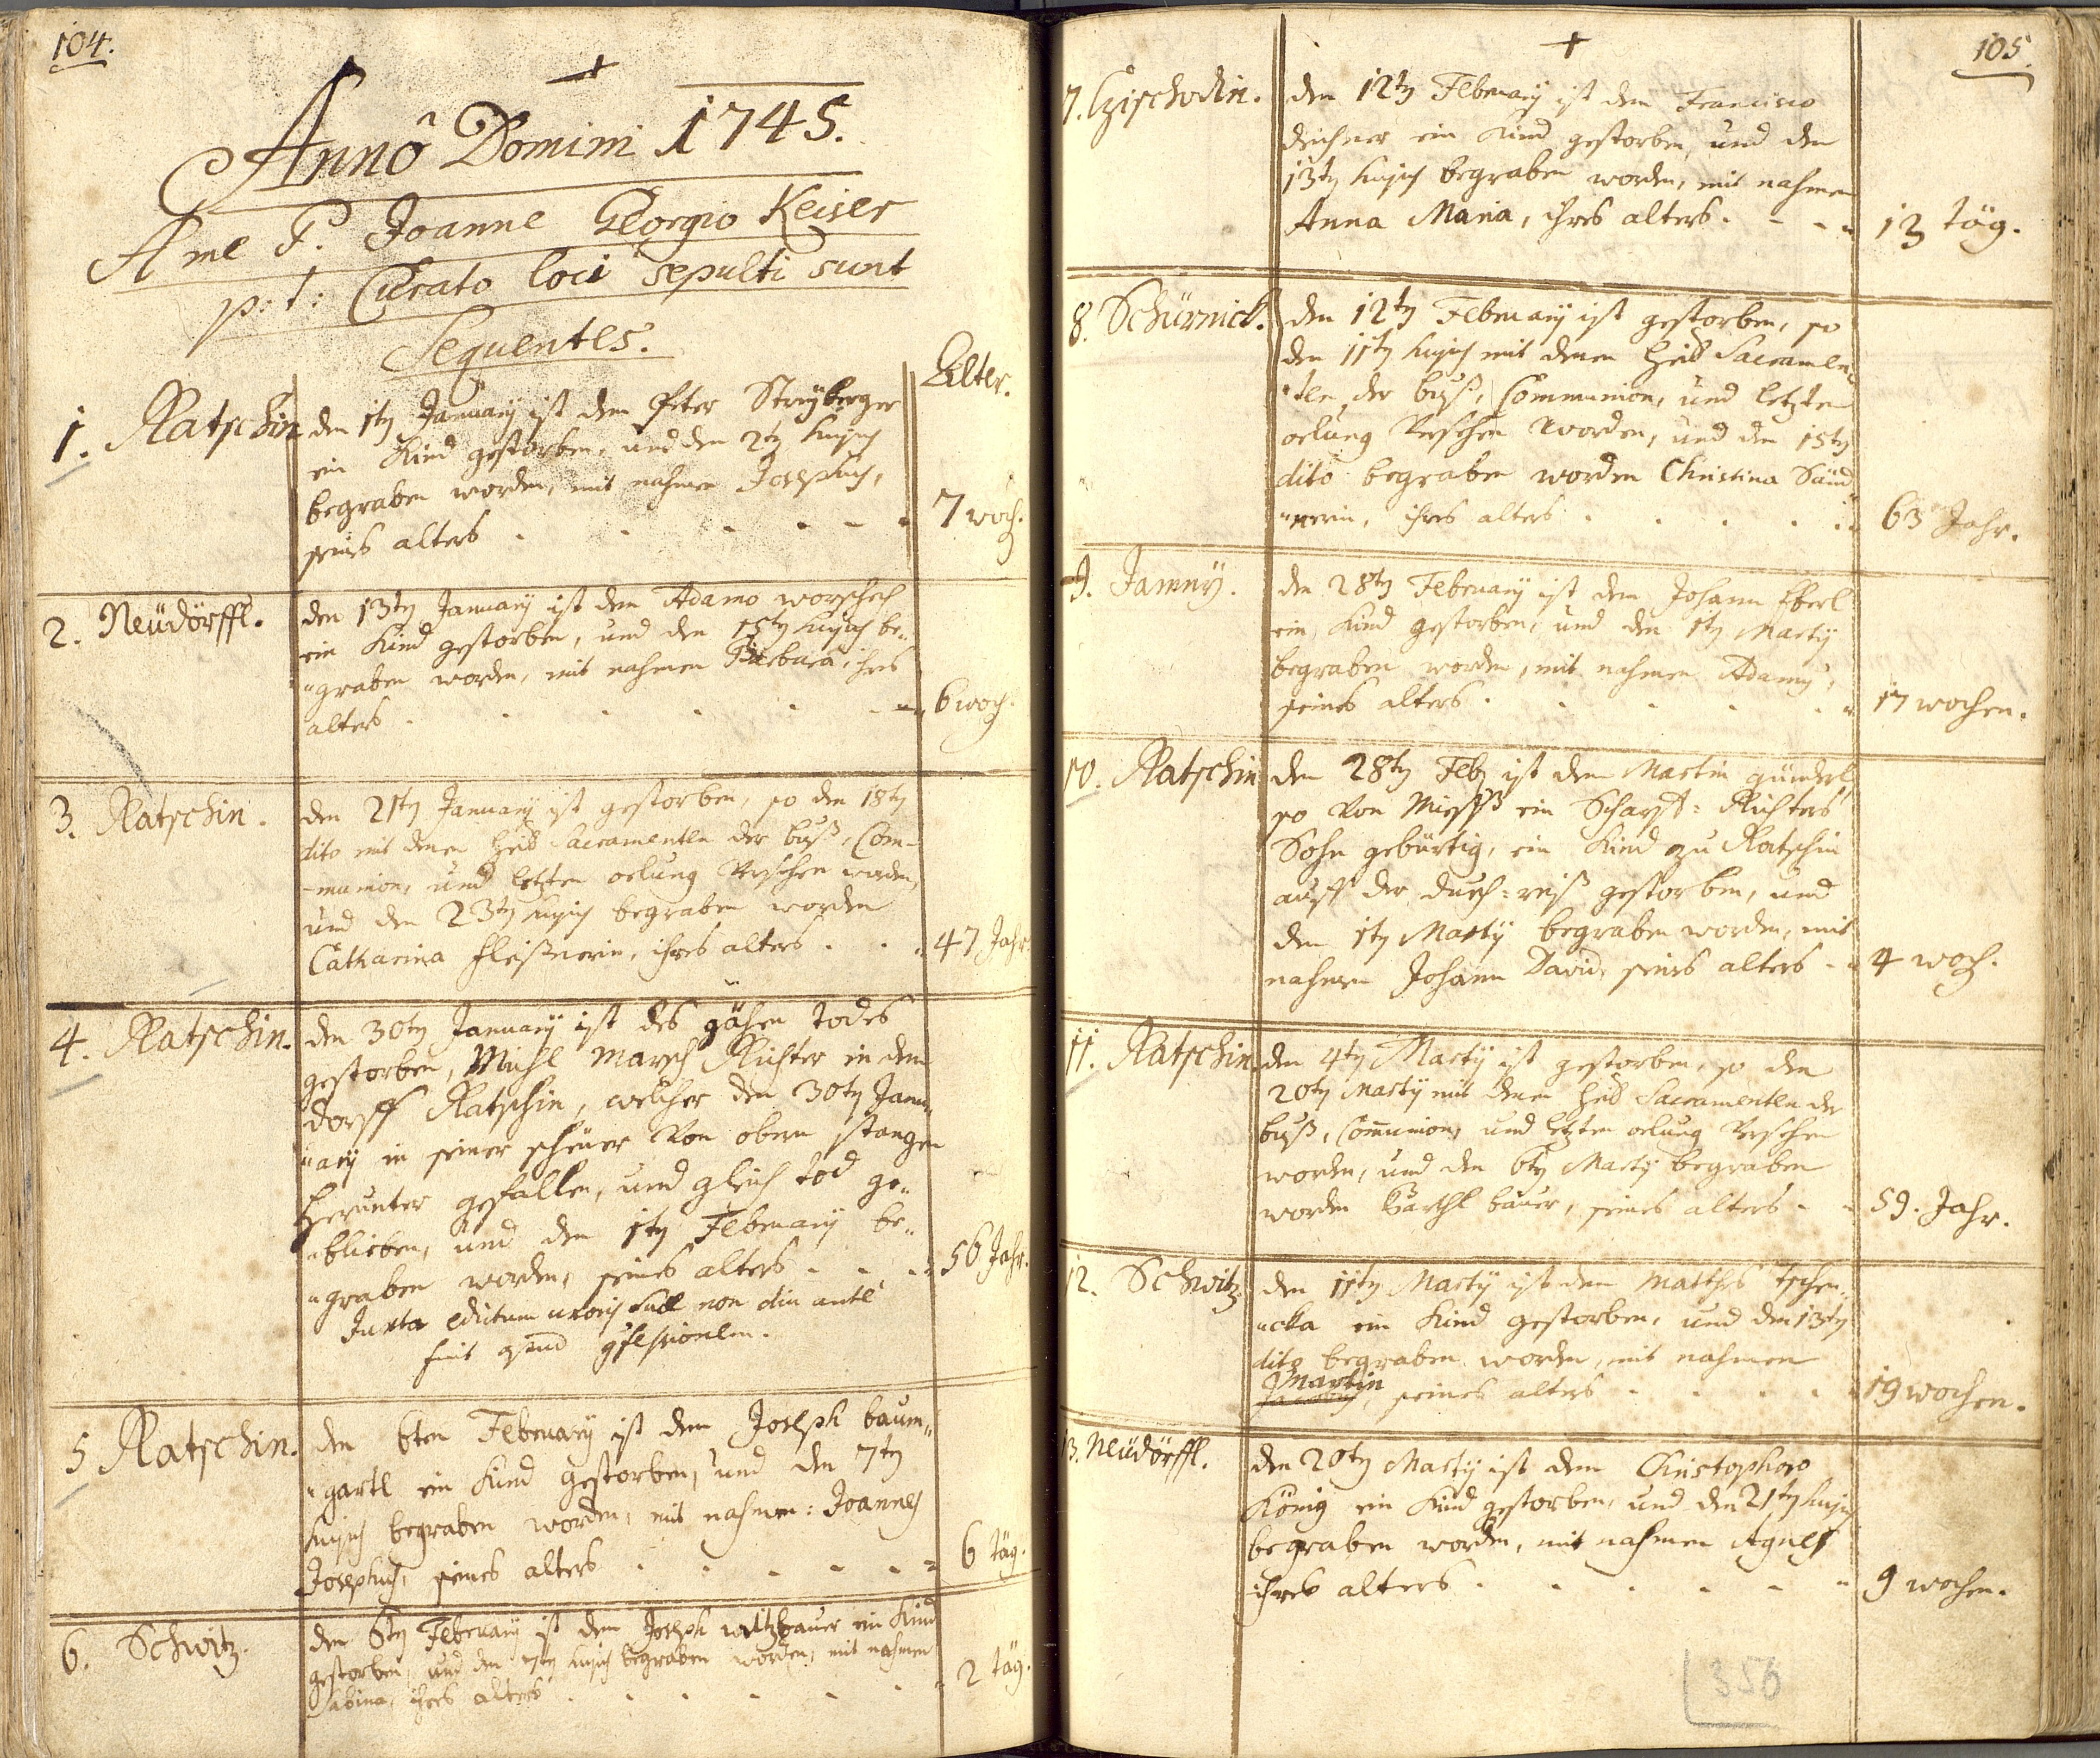 104.
Annô Domini 1745.
A me P. Joanne Georgio Keiser
p: t: Curato loci sepulti sunt
Sequentes.
Alter.
1. Ratschin den 1ty January ist dem Peter Streyberger
ein Kind gestorben, und den 2ty hujus
begraben worden, mit nahmen Josephus,
seines alters 7 woch.
2. Neüdörffl. den 13ty January ist dem Adamo worschech
ein Kind gestorben, und den 15ty hujus be„
„graben worden, mit nahmen Barbara, ihres
alters 6 woch.
3. Ratschin. den 21ty January ist gestorben, so den 18ty
dito mit denen heil. Sacramenten der buß, Com-
-munion, und letzten oelung Versehen worden,
und den 23ty hujus begraben worden
Catharina fleißnerin, ihres alters 47 Jahr.
4. Ratschin. den 30ty January ist des gähen todes
gestorben, Michl Marsch Richter in dem
dorff Ratschin, welcher den 30ty Janu„
„ary in seiner scheüer Von obern stangen
herunter gefallen, und gleich tod ge„
„blieben, und den 1ty February be„
„graben worden, seines alters 56 Jahr.
Juxta edictum uxoris suae non diu ante
fuit
5 Ratschin. den 6ten February ist dem Joseph baum„
„gartl ein Kind gestorben, und den 7ty
hujus begraben worden, mit nahmen: Joannes
Josephus, seines alters 6 täg.
6. Schwitz. den 6ty February ist dem Joseph witzbauer ein Kind
gestorben, und den 7ty hujus begraben worden, mit nahmen
Sabina, ihres alters 2 täg.
105.
7. Czischodin. den 12ty February ist dem Francisco
deichner ein Kind gestorben, und den
13ty hujus begraben worden, mit nahmen
Anna Maria, ihres alters 13 täg.
8. Schürnick. den 12ty February ist gestorben, so
den 11ty hujus mit denen heil. Sacramen„
„ten, der buß, Communion, und letzten
oelung Versehen worden, und den 15ty
dito begraben worden Christina Sünd„
„nerin, ihres alters 63 Jahr.
9. Jamny. den 28ty February ist dem Johann Eberl
ein Kind gestorben, und den 1ty Marty
begraben worden, mit nahmen Adamus,
seines alters 17 wochen.
10. Ratschin den 28ty Feb. ist dem Martin günderl
so Von Miesß ein Scharff: Richters
Sohn gebürtig, ein Kind zu Ratschin
auff der durch: reiß gestorben, und
den 1ty Marty begraben worden, mit
nahmen Johann David, seines alters 4 woch.
11. Ratschin. den 4ty Marty ist gestorben, so den
20ty Marty mit denen heil. Sacramenten der
buß, Communion, und letzten oelung Versehen
worden, und den 6ty Marty begraben
worden Barthl bauer, seines alters 59. Jahr.
12. Schwitz. den 11ty Marty ist dem Mathes tschen„
„cka ein Kind gestorben, und den 13ty
dito begraben worden, mit nahmen
Martin, seines alters 19 wochen.
13. Neüdörffl. den 20ty Marty ist dem Christophoro
König ein Kind gestorben, und den 21ty hujus
begraben worden, mit nahmen Agnes
ihres alters 9 wochen.
356